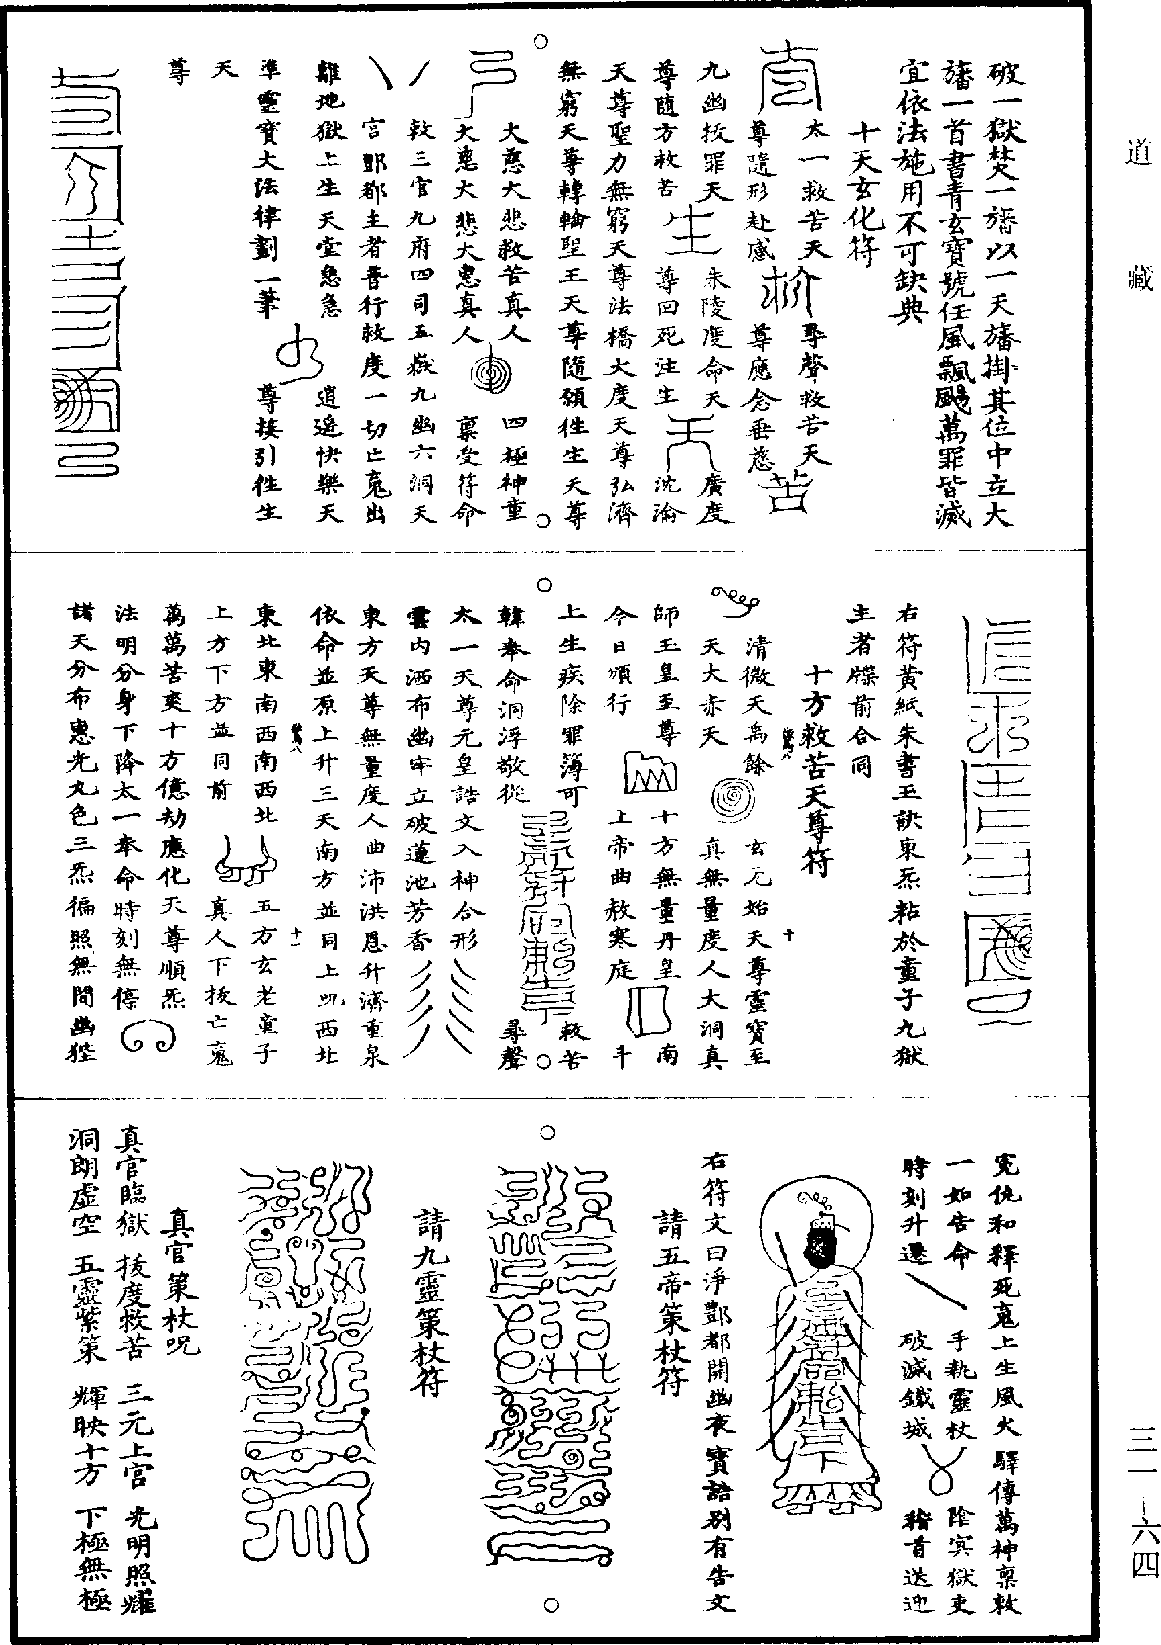 道藏
破一獄焚一旛以一天旛掛其位中立大
旛一首書青玄寶號任風飄颺萬罪皆滅
宜依法施用不可缺典
十天玄化符
太一救苦天 尋聲救苦天
尊隨形赴感 尊應念垂慈
九幽拔罪天 朱陵度命天 廣度
尊隨方救苦 尊回死注生 沈淪
天尊聖力無窮天尊法橋大度天尊弘濟
無窮天尊轉輪聖王天尊隨願往生天尊
大慈大悲救苦真人 四極神童
大慈大悲大惠真人 稟受符命
敕三官九府四司五嶽九幽六洞天
宮酆都主者普行救度一切亡䰟出
離地獄上生天堂急急 逍遥快樂天
準靈寶大法律劃一筆 尊接引往生
天
尊
右符黃紙朱書玉訣東炁粘於童子九獄
生者牒前合同
十方救苦天尊符
清微天禹餘 玄元始天尊靈寶至
天大赤天 真無量度人大洞真
師玉皇至尊 十方無量丹皇 南
今日頒行 上帝曲赦寒庭 斗
上生疾除罪簿可 救苦
韓奉命洞浮敬從 尋聲
太一天尊元皇誥文入神合形
雲内洒布幽牢立破蓮池芳香
東方天尊無量度人曲沛洪恩升濟重泉
依命並原上升三天南方並同上 西北
東北東南西南西北 五方玄老童子
上方下方並同前 真人下拔亡䰟
萬萬苦爽十方億劫應化天尊順炁
法明分身下降太一奉命時刻無停
諸天分布惠光九色三炁徧照無間幽狴
十
十一
冤仇和釋死䰟上生風火驛傳萬神稟敕
一如告命 手執靈杖 陰冥獄吏
時刻升遷 破滅鐵城 稽首送迎
右符文曰淨酆都開幽夜寶誥别有告文
請五帝策杖符
請九靈策杖符
真官策杖呪
真官臨獄 拔度救苦 三元上宮 光明照耀
洞朗虛空 五靈紫策 輝映十方 下極無極
三一—六四